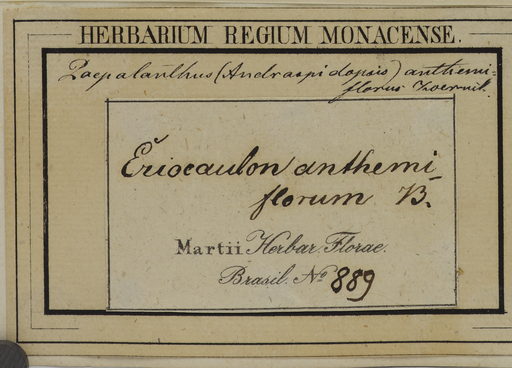 HERBARIUM REGIUM MONACENSE.
Paepalanthus (Andraspidopsis) anthemi=
florus Koernik.
Eriocaulon anthemi_
florum B.
Martii Herbar. Florae.
Brasil. No 889